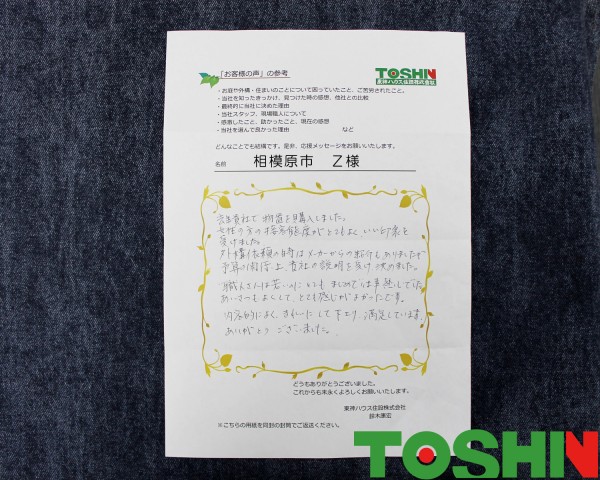 「お客様の声」の参考
TOSHIN
東神ハウス住設株式会社
・お庭や外構・住まいのことについて困っていたこと、ご苦労されたこと。
・当社を知ったきっかけ、見つけた時の感想、他社との比較
・最終的に当社に決めた理由
・当社スタッフ、現場職人について
・感動したこと、助かったこと、現在の感想
・当社を選んで良かった理由 など
どんなことでも結構です。是非、応援メッセージをお願いいたします。
名前 相模原市 Z様
貴社で物置を購入しました。
女性の方の接客態度がとてもよく、いい印象を
受けました。
外構依頼の時はメーカーからの紹介もありましたが
予算の関係上、貴社の説明を受け決めました。
職人さんは若いのにとてもまじめで仕事熱心でした
あいさつもよくして、とても感じがよかったです。
内容的によく、きれいにして頂き、満足しています。
ありがとうございました。
どうもありがとうございました。
これからも末永くよろしくお願いいたします。
東神ハウス住設株式会社
鈴木康宏
※こちらの用紙を同封の封筒でご返送ください。
TOSHIN